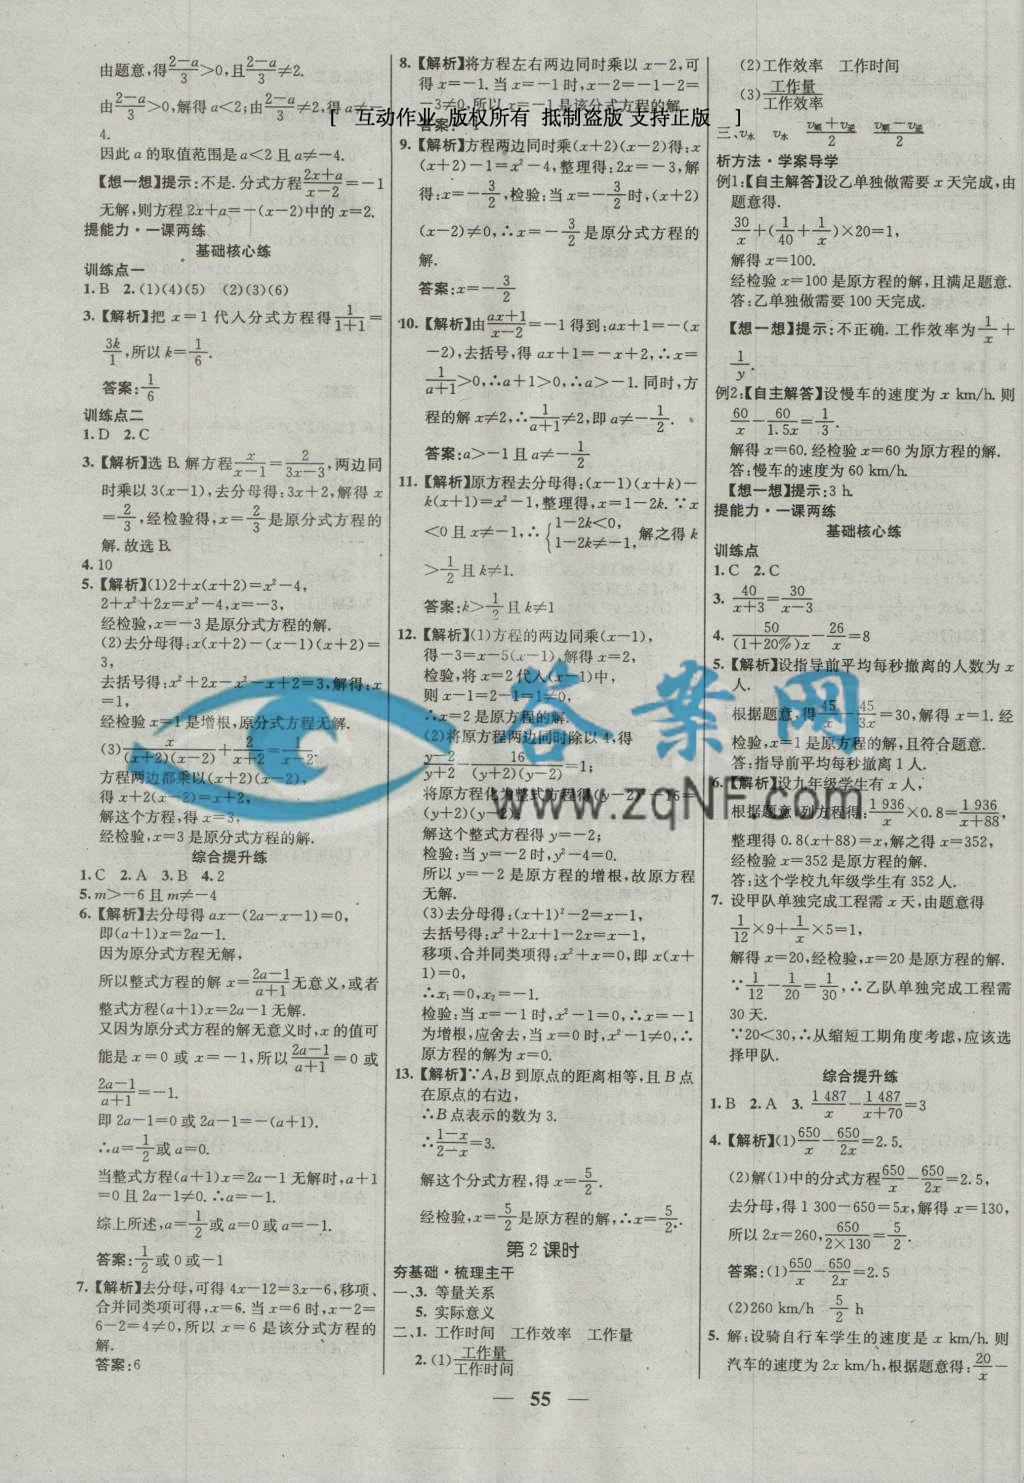 由题意,得(2-a)/3>0,且(2-a)/3≠2.
由(2-a)/3>0,解得a<2;由(2-a)/3≠2,得a≠-
4.
因此a的取值范围是a<2且a≠-4.
【想一想】提示:不是.分式方程(2x+a)/(x-2)=-1
无解,则方程2x+a=-(x-2)中的x=2.
提能力·一课两练
基础核心练
训练点一
1.B 2.(1)(4)(5) (2)(3)(6)
3.【解析】把x=1代入分式方程得1/(1+1)=
3k/1,所以k=1/6.
答案:1/6
训练点二
1.D 2.C
3.【解析】选B.解方程x/(x-1)=2/(3x-3),两边同
时乘以3(x-1),去分母得:3x+2,解得x
=2/3,经检验得,x=2/3是原分式方程的
解.故选B.
4.10
5.【解析】(1)2+x(x+2)=x²-4,
2+x²+2x=x²-4,x=-3,
经检验,x=-3是原分式方程的解.
(2)去分母得:x(x+2)-(x-1)(x+2)=
3,
去括号得:x²+2x-x²-x+2=3,解得:x
=1,
经检验x=1是增根,原分式方程无解.
(3)x/((x+2)(x-2))+2/(x+2)=1/(x-2).
方程两边都乘以(x+2)(x-2),
得x+2(x-2)=x+2,
解这个方程,得x=3,
经检验,x=3是原分式方程的解.
综合提升练
1.C 2.A 3.B 4.2
5.m>-6且m≠-4
6.【解析】去分母得ax-(2a-x-1)=0,
即(a+1)x=2a-1.
因为原分式方程无解,
所以整式方程的解x=(2a-1)/(a+1)无意义,或者
整式方程(a+1)x=2a-1无解.
又因为原分式方程的解无意义时,x的值可
能是x=0或x=-1,所以(2a-1)/(a+1)=0或
(2a-1)/(a+1)=-1.
即2a-1=0或2a-1=-(a+1).
∴a=1/2或a=0.
当整式方程(a+1)x=2a-1无解时,a+1
=0且2a-1≠0.∴a=-1.
综上所述,a=1/2或a=0或a=-1.
答案:1/2或0或-1
7.【解析】去分母,可得4x-12=3x-6,移项、
合并同类项可得,x=6.当x=6时,x-2=
6-2=4≠0,所以x=6是该分式方程的
解.
答案:6
8.【解析】将方程左右两边同时乘以x-2,可
得x=-1.当x=-1时,x-2=-1-2=
-3≠0,所以x=-1是该分式方程的解.
答案:-1
9.【解析】方程两边同时乘(x+2)(x-2)得:x
(x+2)-1=x²-4,整理得:2x=-3,解
得:x=-3/2,检验:当x=-3/2时,(x+2)
(x-2)≠0,∴x=-3/2是原分式方程的
解.
答案:x=-3/2
10.【解析】由(ax+1)/(x-2)=-1得到:ax+1=-(x
-2),去括号,得ax+1=-x+2,∴x=
1/(a+1)>0,∴a+1>0,∴a>-1.同时,方
程的解x≠2,∴1/(a+1)≠2,即a≠-1/2.
答案:a>-1且a≠-1/2
11.【解析】原方程去分母得:(x-1)(x+k)-
k(x+1)=x²-1,整理得,x=1-2k.∵x
<0且x≠-1,∴{1-2k<0, 1-2k≠-1, 解之得k
>1/2且k≠1.
答案:k>1/2且k≠1
12.【解析】(1)方程的两边同乘(x-1),
得-3=x-5(x-1),解得x=2,
检验,将x=2代入(x-1)中,
则x-1=2-1=1≠0,
∴x=2是原方程的解.
(2)将原方程两边同时除以4,得
(y-2)/(y+2)-16/((y+2)(y-2))=1;
将原方程化为整式方程得(y-2)²-16=
(y+2)(y-2),
解这个整式方程得y=-2;
检验:当y=-2时,y²-4=0.
所以y=-2是原方程的增根,故原方程
无解.
(3)去分母得:(x+1)²-2=x-1,
去括号得:x²+2x+1-2x=x-1,
移项、合并同类项得:x²+x=0,即x(x+
1)=0,
∴x₁=0,x₂=-1.
检验:当x=-1时,x²-1=0,∴x=-1
为增根,应舍去,当x=0时,x²-1≠0,∴
原方程的解为x=0.
13.【解析】∵A,B到原点的距离相等,且B点
在原点的右边,
∴B点表示的数为3.
∴(1-x)/(2-x)=3.
解这个分式方程,得x=5/2.
经检验,x=5/2是原方程的解,∴x=5/2.
第2课时
夯基础·梳理主干
一、3.等量关系
5.实际意义
二、1.工作时间 工作效率 工作量
2.(1)工作量/工作时间
(2)工作效率 工作时间
(3)工作量/工作效率
三、v水 v水 (v顺+v逆)/2 (v顺-v逆)/2
析方法·学案导学
例1:【自主解答】设乙单独做需要x天完成,由
题意得.
30/x+(1/40+1/x)×20=1,
解得x=100.
经检验x=100是原方程的解,且满足题意.
答:乙单独做需要100天完成.
【想一想】提示:不正确.工作效率为1/x+
1/y.
例2:【自主解答】设慢车的速度为x km/h.则
60/x-60/1.5x=1/3.
解得x=60.经检验x=60为原方程的解.
答:慢车的速度为60 km/h.
【想一想】提示:3 h.
提能力·一课两练
基础核心练
训练点
1.C 2.C
3.40/(x+3)=30/(x-3)
4.50/((1+20%)x)-26/x=8
5.【解析】设指导前平均每秒撤离的人数为x
人.
根据题意,得45/x-45/3x=30,解得x=1.经
检验,x=1是原方程的解,且符合题意.
答:指导前平均每秒撤离1人.
6.【解析】设九年级学生有x人,
根据题意,列方程得:1 936/x×0.8=1 936/(x+88),
整理得0.8(x+88)=x,解之得x=352,
经检验x=352是原方程的解.
答:这个学校九年级学生有352人.
7.设甲队单独完成工程需x天,由题意得
1/12×9+1/x×5=1,
解得x=20,经检验,x=20是原方程的解.
∵1/12-1/20=1/30,∴乙队单独完成工程需
30天.
∵20<30,∴从缩短工期角度考虑,应该选
择甲队.
综合提升练
1.B 2.A 3.1 487/x-1 487/(x+70)=3
4.【解析】(1)650/x-650/2x=2.5.
(2)解(1)中的分式方程650/x-650/2x=2.5,
去分母,得1 300-650=5x,解得x=130,
所以2x=260,650/(2×130)=5/2.
答案:(1)650/x-650/2x=2.5
(2)260 km/h 5/2 h
5.解:设骑自行车学生的速度是x km/h.则
汽车的速度为2x km/h,根据题意得:20/x-
55
[ 互动作业 版权所有 抵制盗版 支持正版 ]
答案网
www.zqNF.com